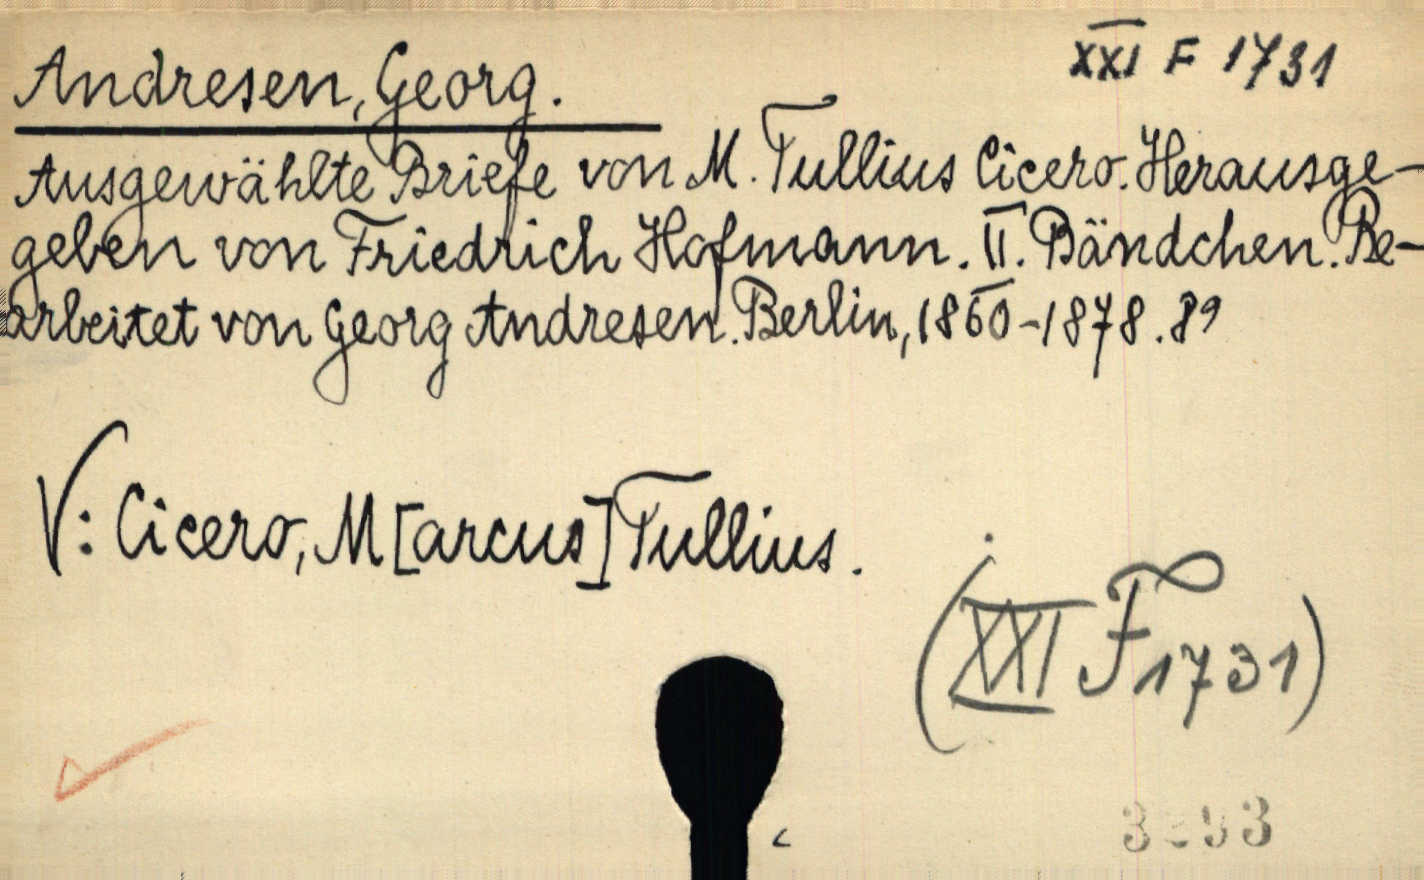 XXI F 1731
Andresen, Georg.
Ausgewählte Briefe von M. Tullius Cicero. Herausge-
geben von Friedrich Hofmann. II. Bändchen. Be-
arbeitet von Georg Andresen. Berlin, 1860-1878. 8°
V: Cicero, M[arcus] Tullius.
(XXI F 1731)